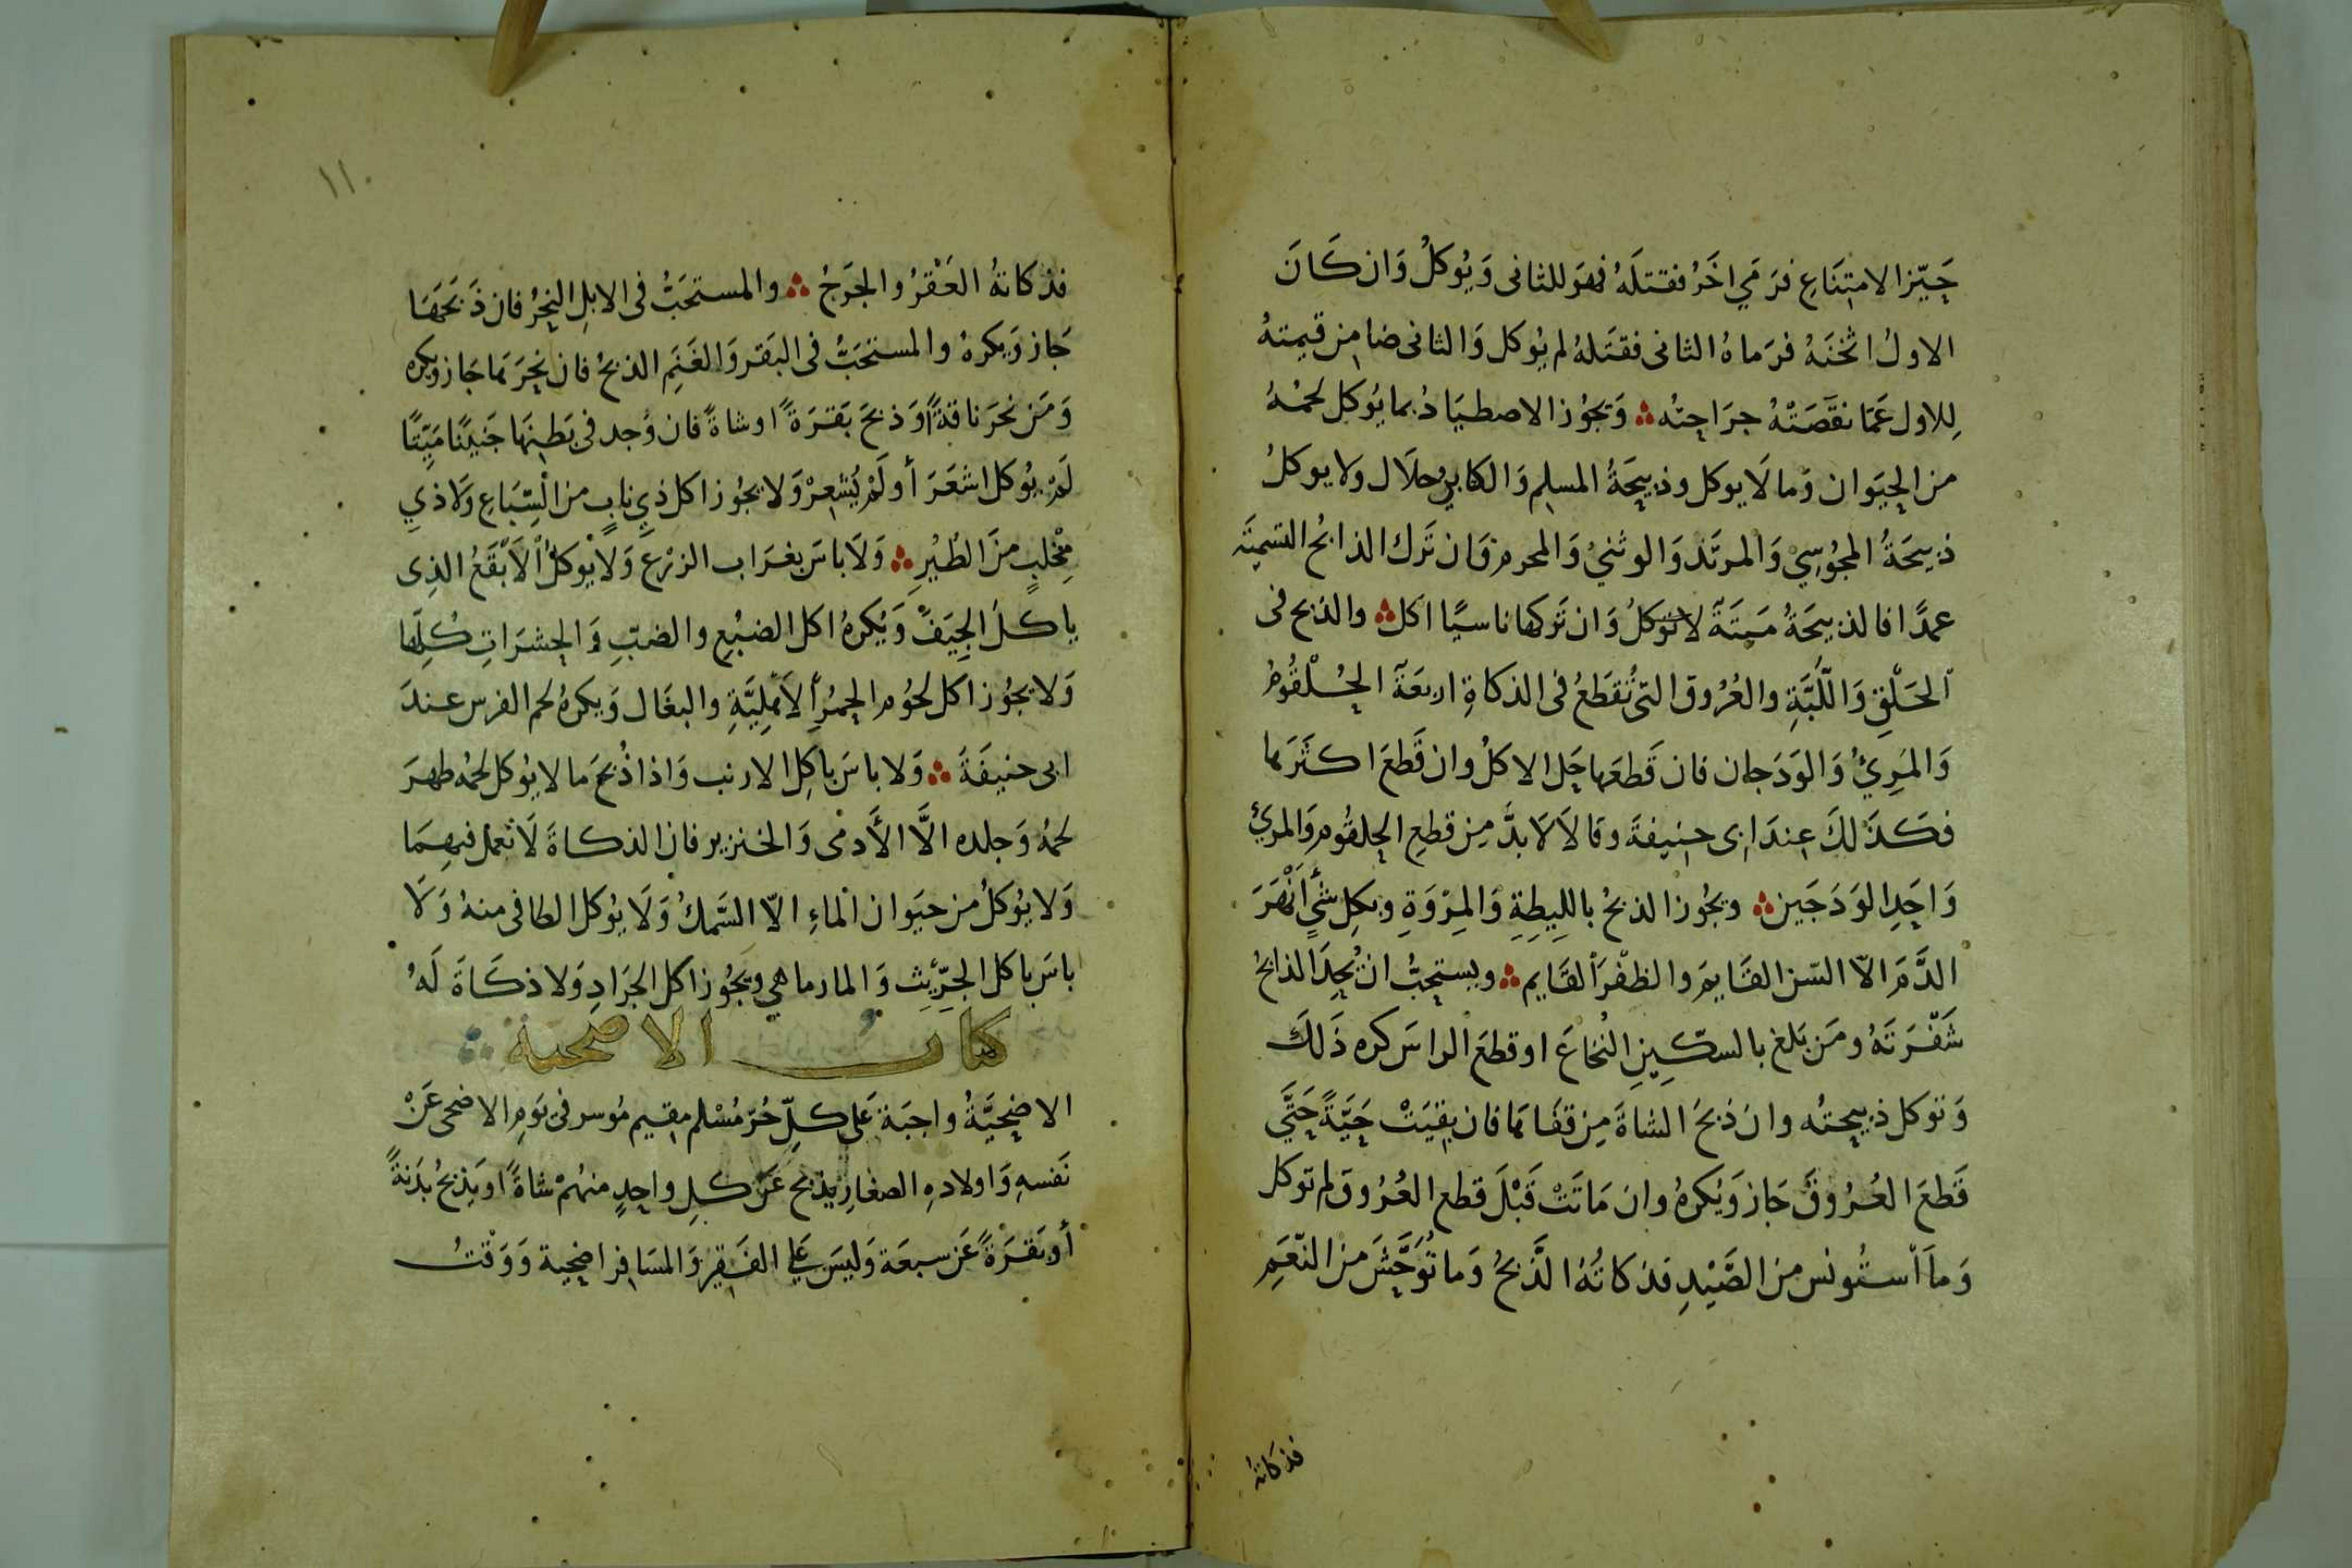 حَيّز الامتِنَاعِ فرَمَي اخَرُ فقتلَهُ فهوَ للثانى وَيُوكلُ وَان كَانَ
الاولُ اثخنَهُ فرَماهُ الثانى فقتَلهُ لم يُوكل وَالثانى ضامِن قيمتهُ
لِلاول عَمّا نقَّصَتْهُ جرَاحتُه ويَجُوز الاصطيَادُ بما يُوكل لحمُهُ
من الحيَوان وَما لَا يوكل وذبيحَةُ المسلِم وَالكتابي حلَال ولا يوكلُ
ذبيحَةُ المجُوسِيّ وَالمرتَد وَالوثنيُ وَالمحرم وَان تَرك الذابحُ التسميَة
عمدًا فالذبيحَةُ مَيتَةَ لا تُوكلُ وَان تَركها ناسيًا اكل والذبح فى
الحَلْقِ وَاللَّبَّةِ والعُرُوق التى تُقطَعُ فى الذكاةِ اربعَة الحُلْقُومُ
وَالمَرِيُ وَالوَدَجان فان قَطعَها حَل الاكلُ وان قَطعَ اكثرَها
فكَذلكَ عِندَ ابى حنِيفةَ وقالَا لَا بدَّ مِن قطعِ الحلقُوم وَالمرئ
وَاحَدِ الوَدَجَين ويجُوز الذبحُ بالليطِةِ وَالمِرْوَةِ وبكلِ شَئٍ اَنْهَرَ
الدَّمَ الّا السّن القَايمَ والظفْرَ القَايم ويستحبُّ ان يُحِدَ الذابحُ
شَفْرَتَهُ ومَن بَلغ بالسكّينِ النُخاعَ او قطعَ الراسَ كره ذَلكَ
وَتوكل ذبيحتُه وان ذبحَ الشاةَ مِن قفَاهَا فان بقِيَتْ حَيَّةً حَتَّي
قَطعَ العُرُوقَ جَاز وَيُكرهُ وان مَاتَتْ قَبْلَ قطع العُرُوق لم توكل
وَما اَستُونس مِن الصَّيْدِ فذكاتُهُ الذَّبحُ وَما تُوَحَّشَ من النّعَمِ
فذكاته
١١٠
فذكاتهُ العَقْرُ والجَرحُ والمستحَبُّ فى الابلِ النحرُ فان ذَبحَهَا
جَاز وَيكرهُ والمستحَبُّ فى البَقر وَالغَنَمِ الذبحُ فان نحَرَهَا جَاز ويكره
وَمَن نحَرَ ناقةً أوَ ذبحَ بَقرَةً او شاةً فان وُجد فى بَطِنهَا جَنينًا مَيّتًا
لَمْ يُوكل اشعَرَ أو لَمْ يُشعِرْ وَلا يجُوز اكل ذيِ نابٍ من السِّبَاعِ وَلا ذيِ
مِخْلبٍ منَ الطُيْرِ وَلَا باسَ بغرَاب الزرْعِ وَلا يُوكلُ الاَبْقَعُ الذِى
ياكلَ الجِيَفْ وَيُكرهُ اكل الضبُعِ والضبِّ وَالحشرَاتِ كُلِّها
وَلا يجُوز اكل لحُومِ الحِمُرِ الاَهلِيَّةِ والبغَال وَيكرهُ لحم الفرس عندَ
ابى حنيفَةَ وَلا باسَ باكِل الارنب وَاذا ذُبحَ مَا لا يُوكل لحمُه طهرَ
لحمُهُ وَجلده الَّا الأَدمى وَالخنزير فان الذكاةَ لَا تعمل فيهِمَا
وَلا يُوكلُ من حيَوان الماءِ الّا السَّمكُ وَلَا يُوكل الطافى منهُ وَلَا
باسَ باكل الجِرِّيثِ وَالمارماهي ويَجُوز اكل الجرَادِ وَلا ذكَاةَ لَهُ
كتاب الاضحية
الاضحِيَّةُ واجبَة عَلى كلِّ حُرّ مُسْلم مقِيم مُوسر فى يَومِ الاضحى عَنْ
نَفسهِ وَاولادهِ الصغارِ يذبح عَنَ كلِ واحدٍ منهُمْ شاةً او يَذبحُ بُدَنةً
أو بَقرَةً عَن سبعَة وَليسَ عَلي الفَقيرِ وَالمسَافِر اضحية وَوَقتُ